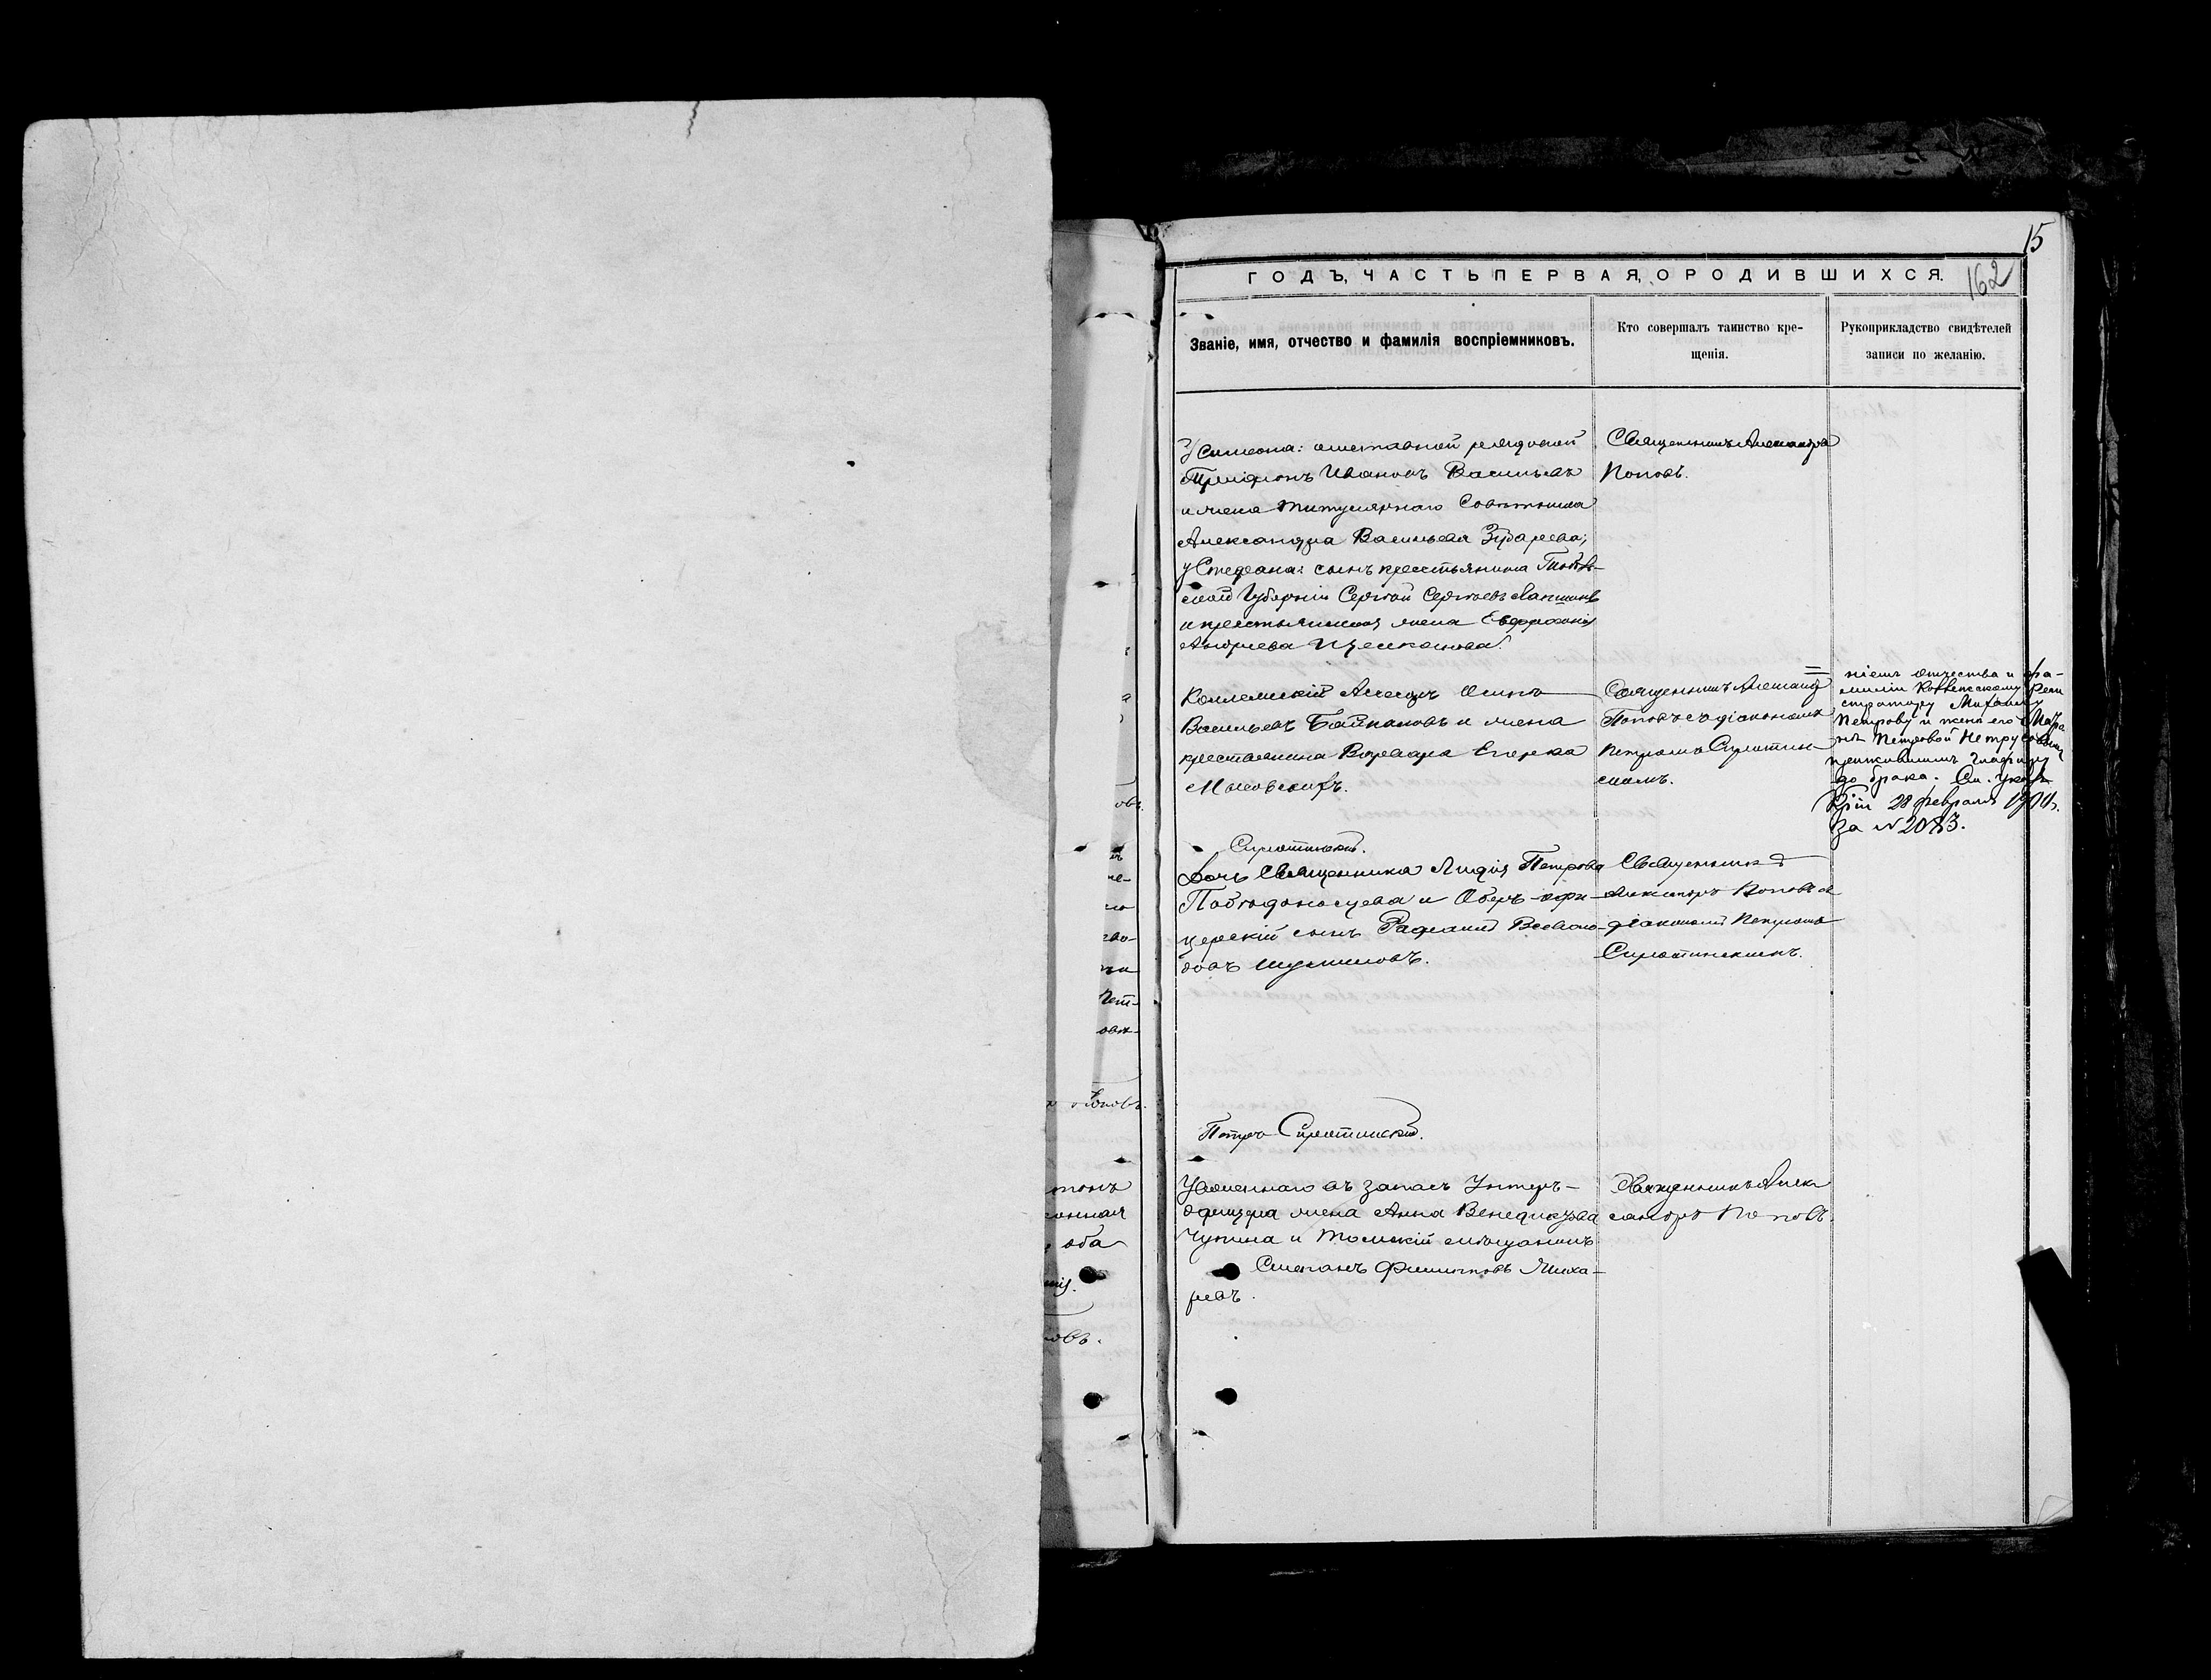 15
ГОДЪ, ЧАСТЬ ПЕРВАЯ, О РОДИВШИХСЯ.
162
Званіе, имя, отчество и фамилія воспріемниковъ.
Кто совершалъ таинство кре-
щенія.
Рукоприкладство свидѣтелей
записи по желанію.
У Симеона: отставной рядовой
Иванов Васильевъ
и жена титулярнаго Совѣтника
Александра Васильева Зубарева;
у Стефана: сынъ крестьянина Тоболь-
ской Губерніи Сергѣй Сергѣевъ Лапшинъ
и крестьянская жена Евфросинія
Андреева
Священникъ Александръ
Поповъ.
Коллежскій Асессоръ Осипъ
Васильевъ Байкаловъ и жена
крестьянина Варвара Егорова
Священникъ Александръ
Поповъ съ діакономъ
Петромъ Сиротин-
скимъ.
ніемъ отчества и фа-
миліи Коллежскому Реги
стратору Михаилу
Петрову и женѣ его
Петровой Петрусовымъ
прижившимъ Глафиру
до брака. См. Указъ
28 февраля 1901 г.
за № 2083.
Сиротинскій.
Дочь Священника Лидія Петрова
Побѣдоносцева и Оберъ-офи-
церскій сынъ Рафаилъ Всеволо-
довъ Шумиловъ.
Священникъ
Александръ Поповъ съ
діакономъ Петромъ
Сиротинскимъ.
Петръ Сиротинскій.
Уволеннаго въ запасъ Унтеръ-
офицера жена Анна Венедиктова
Чупина и Томскій мѣщанинъ
Степанъ Филипповъ Лиха-
ревъ.
Священникъ Алек
сандръ Поповъ